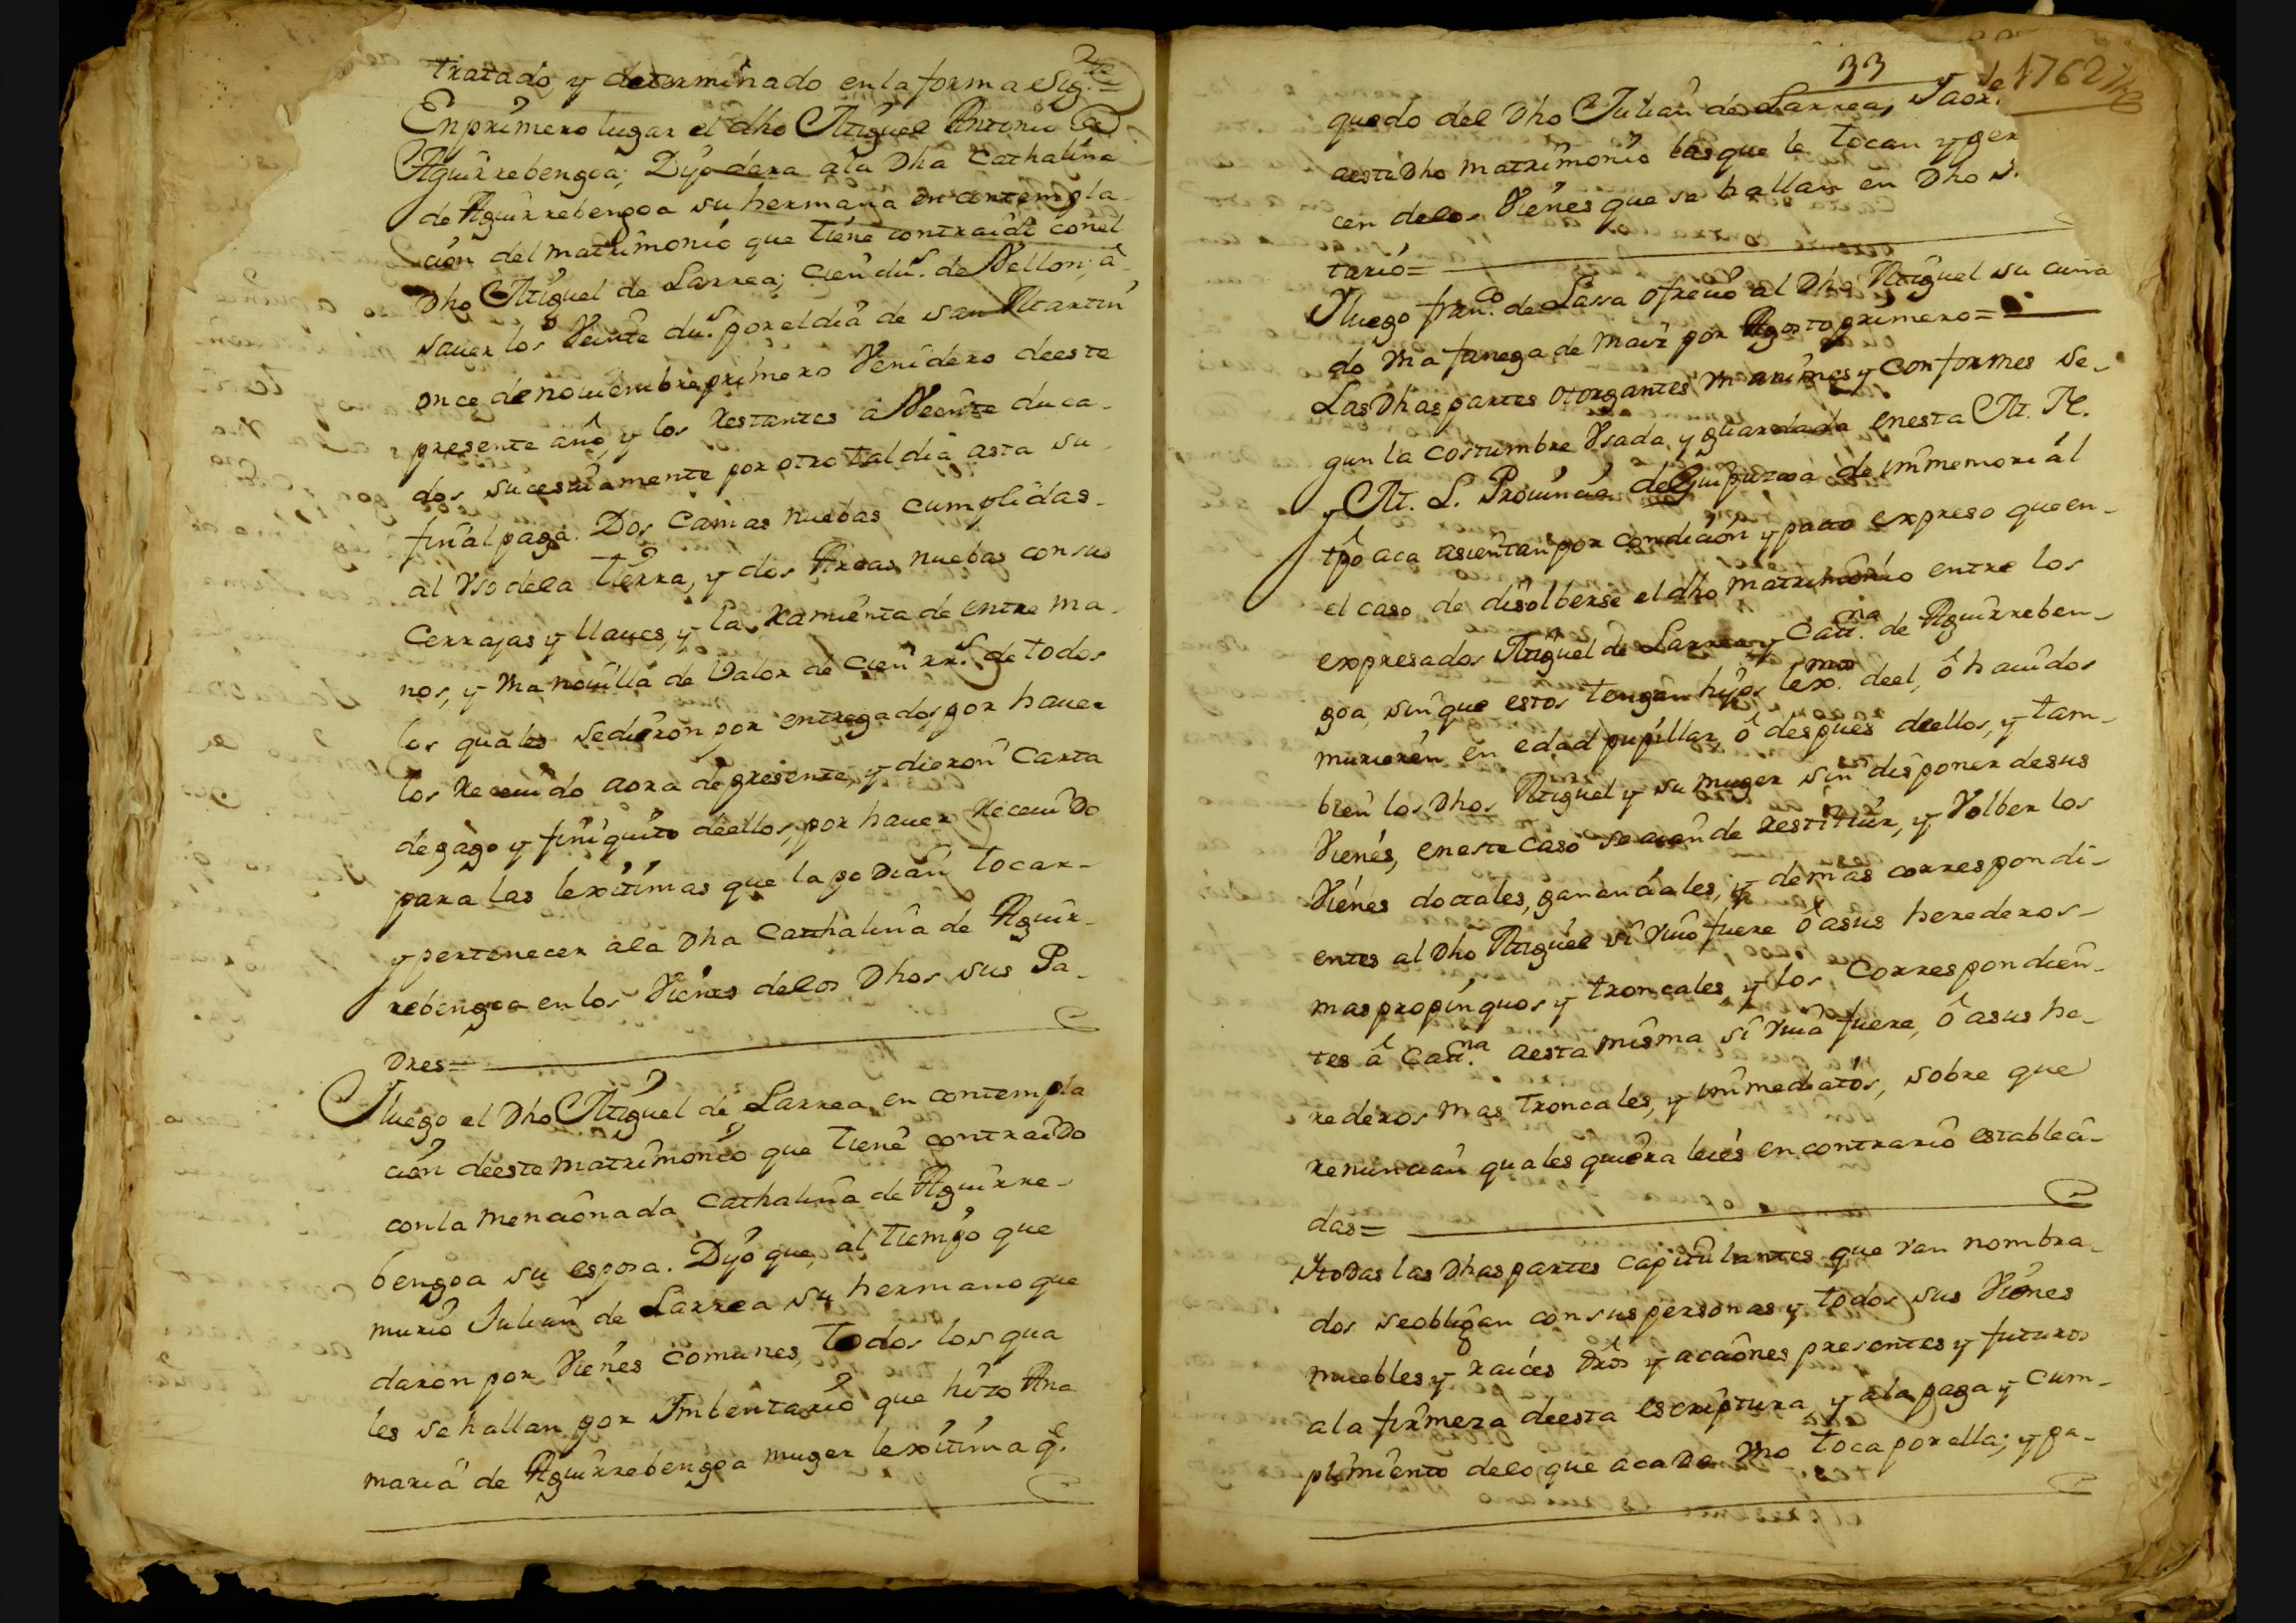 tratado, y determinado en la forma Sig.te=
En primero lugar el dho Miguel Antonio de
Aguirrebengoa; Dijo dara ala Dha Cathalina
de Aguirrebengoa su hermana en contempla-
ción del matrimonio que tiene contraido con el
Dho Miguel de Larrea; cien du.s de Vellon; â
saver los Veinte du.s por el dia de San Martin
once de noviembre primero Venidero deeste
presente año, y los Restantes â Veinte duca-
dos sucesivamente por otro tal dia asta su
final paga. Dos Camas nuebas cumplidas-
al Vso dela tierra, y dos Arcas nuebas con sus
Cerrajas y llaves, y la Ramienta de entre ma-
nos, y Vna novilla de Valor de Cien rr.s de todos
los quales sedieron por entregados por haver
los Recevido aora de presente, y dieron Carta
de pago y finiquito deellos, por haver Recevido
para las lexitimas que la podian tocar-
y pertenecer ala Dha Cathalina de Aguir-
rebengoa en los Vienes delos Dhos sus Pa-
Dres=
Y luego el Dho Miguel de Larrea en contempla
ción deeste matrimonio que tiene contraido
con la mencionada Cathalina de Aguirre-
bengoa su esposa. Dijo que, al tiempo que
murio Julian de Larrea su hermano que
daron por Vienes comunes, todos los qua
les se hallan por Imbentario que hizo Ana
maria de Aguirrebengoa muger lexitima q.e
33
1762
quedo del Dho Julian de Larrea, y de
aeste Dho matrimonio las que le tocan y per
cen delos Vienes que se hallan en Dho
tario=
Y luego fran.co de Lassa ofrecio al Dho Miguel su cuña
do Vna fanega de maiz por Agosto primero=
Las Dhas partes otorgantes Vnanimes y conformes se-
gun la costumbre Vsada y guardada enesta M. N.
y M. L. Provincia de Guipuzcoa de immemorial
tpô aca asientan por condición y pacto expreso que en-
el caso de disolberse el dho matrimonio entre los
expresados Miguel de Larrea y Catt.na de Aguirreben-
goa, sin que estos tengan hijos lex.mos deel, ô havidos
murieren en edad pupillar, ô despues deellos, y tam-
bien los Dhos Miguel y su muger sin disponer de sus
Vienes, eneste caso se aian de Restituir, y Volber los
Vienes doctales, gananciales, y demas correspondi-
entes al Dho Miguel si Vivo fuere ô asus herederos-
mas propinquos y troncales, y los Correspondien-
tes â Catt.na aesta misma si Viva fuere, ô asus he-
rederos mas troncales, y immediatos, sobre que
renuncian quales quiera leies en contrario estableci-
das=
Y todas las Dhas partes capitulantes que van nombra-
dos se obligan con sus personas y todos sus Vienes
muebles y raices drôs y acciones presentes y futuros
ala firmeza deesta escriptura, y ala paga y cum-
plimiento delo que âcada Vno toca por ella; y pa-